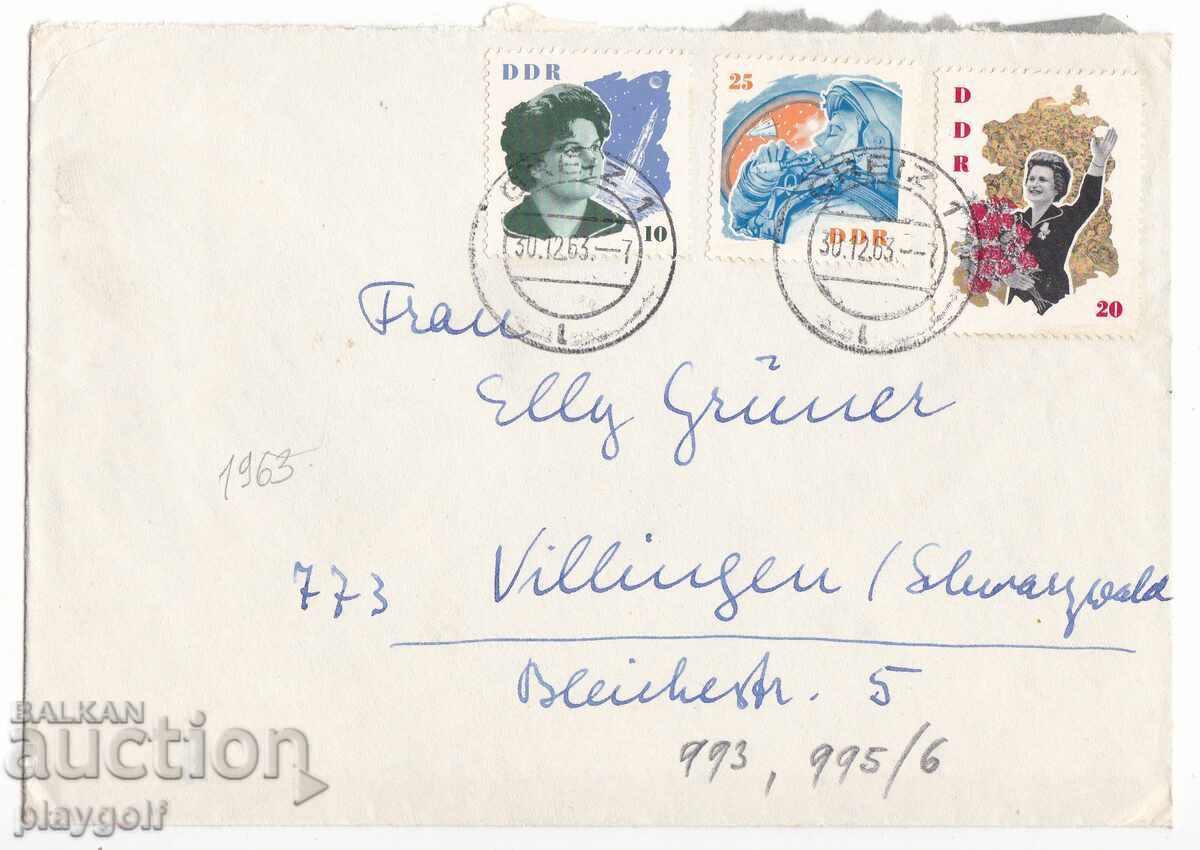 DDR
10
25
DDR
D
D
R
20
GREIZ 1
30.12.63.--7
l
GREIZ 1
30.12.63.--7
l
Frau
Elly Grüner
1963
773 Villingen / Schwarzwald
Bleichestr. 5
993, 995/6
BALKAN
auction
playgolf